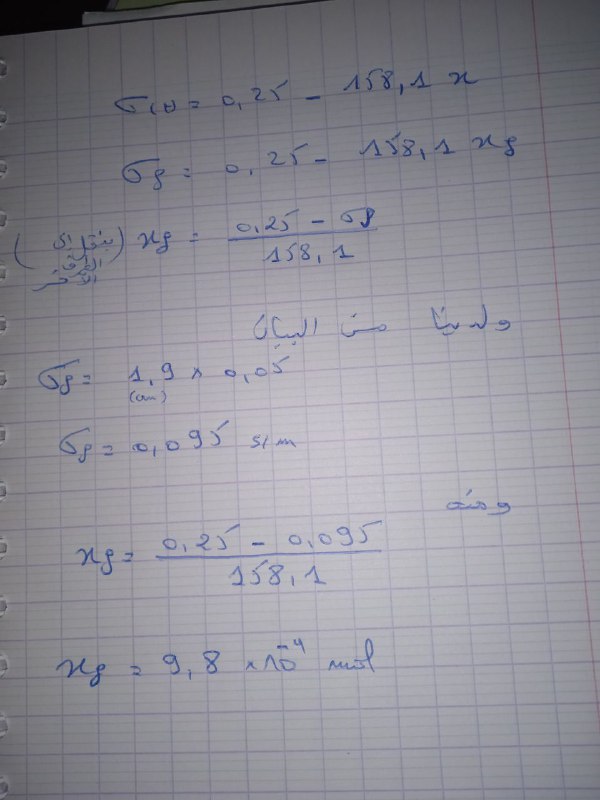 σ(t) = 0,25 - 158,1 x
σf = 0,25 - 158,1 xf
xf = (0,25 - σf) / 158,1
ولدينا من البيان
σf = 1,9 × 0,05
(cm)
σf = 0,095 s/m
ومنه
xf = (0,25 - 0,095) / 158,1
xf = 9,8 × 10⁻⁴ mol